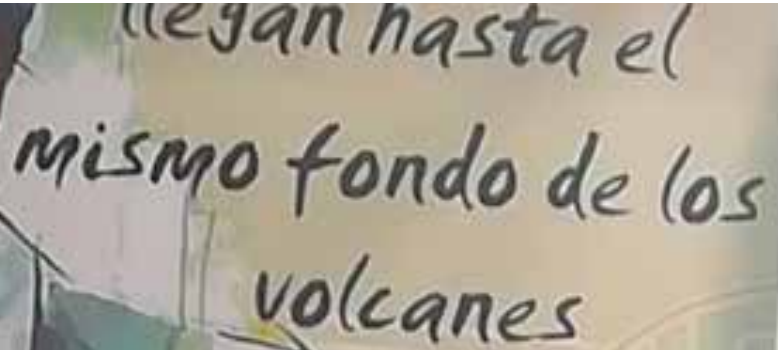 llegan hasta el
mismo fondo de los
volcanes